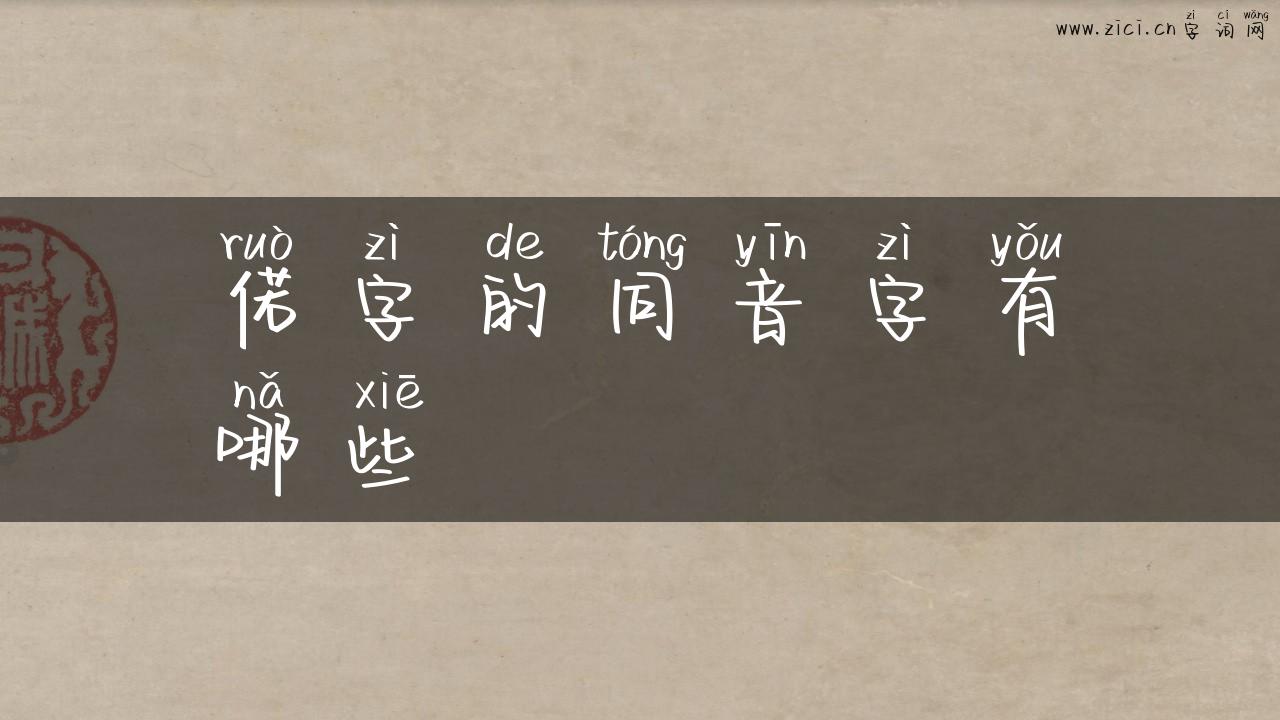 www.zici.cn
zì cí wǎng
字词网
ruò zì de tóng yīn zì yǒu
偌字的同音字有
nǎ xiē
哪些